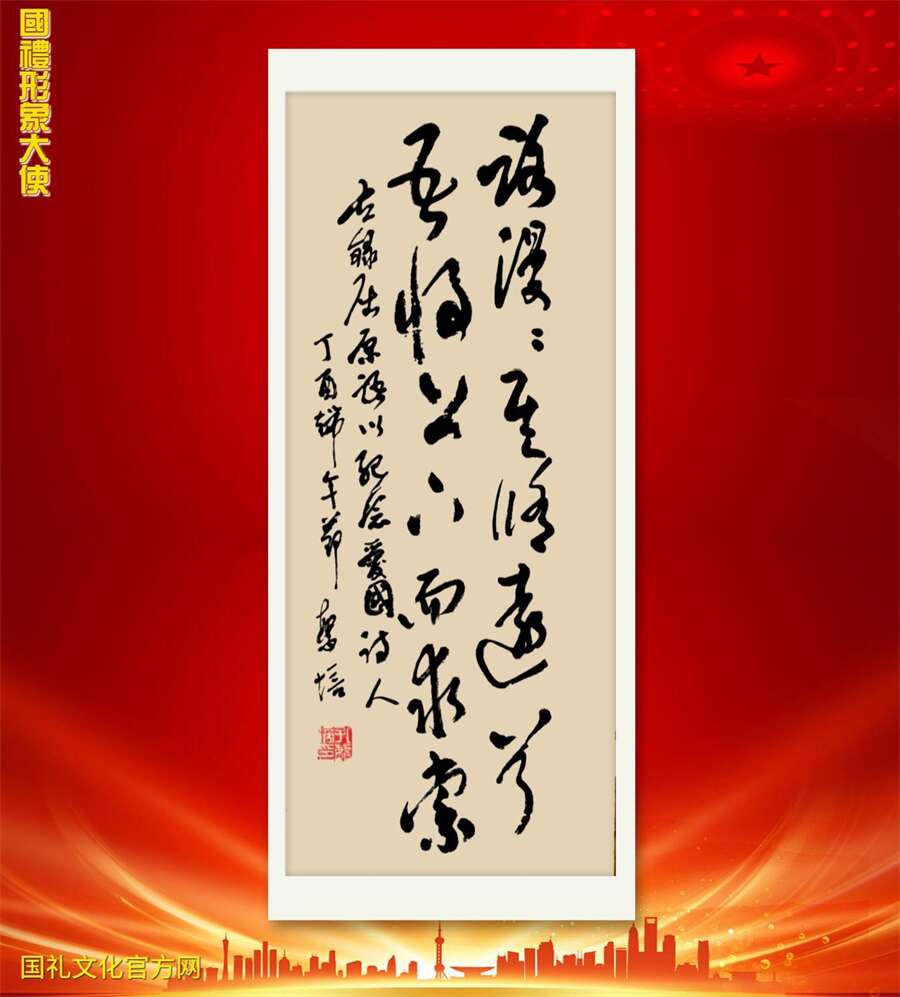 國禮形象大使
路漫漫其脩遠兮
吾将上下而求索
右録屈原語以紀念愛國詩人
丁酉端午節 繁培
国礼文化官方网